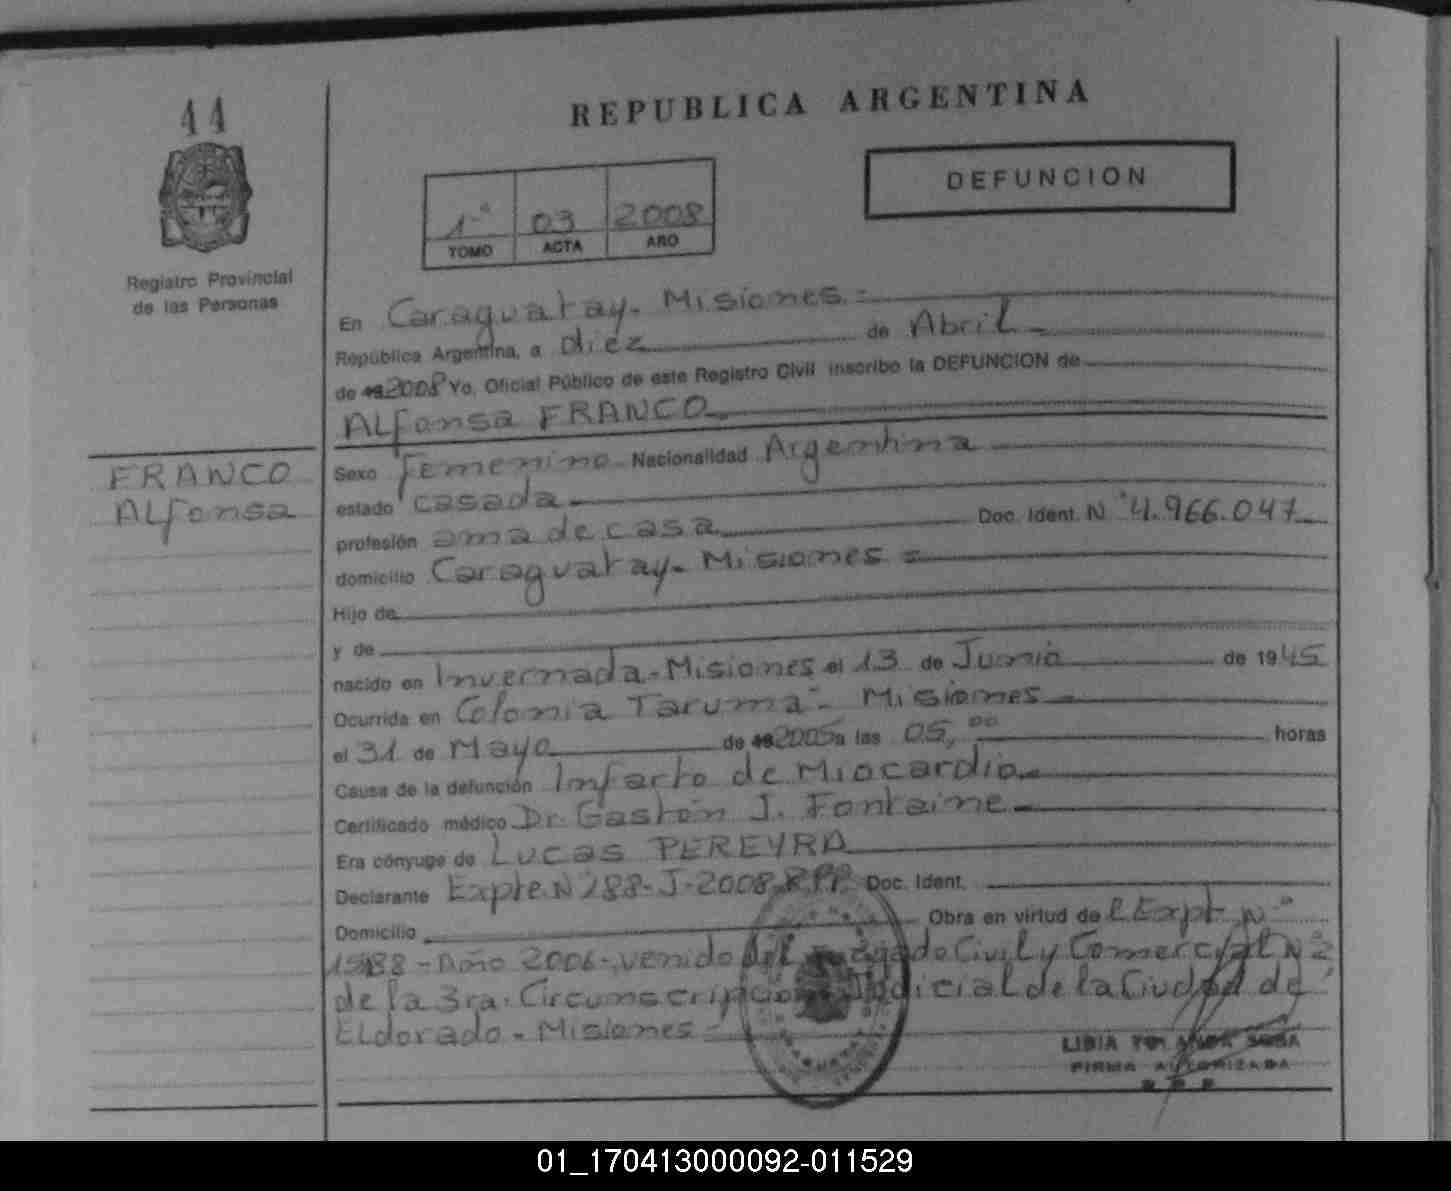 44
REPUBLICA ARGENTINA
DEFUNCION
1-° 03 2008
TOMO ACTA AÑO
Registro Provincial
de las Personas
En Caraguatay. Misiones.=
República Argentina, a diez de Abril
de 19 2008 Yo, Oficial Público de este Registro Civil inscribo la DEFUNCION de
ALfonsa FRANCO
FRANCO
ALfonsa
Sexo Femenino Nacionalidad Argentina
estado casada
profesión ama de casa Doc. Ident. N° 4.966.047
domicilio Caraguatay. Misiones =
Hijo de
y de
nacido en Invernada-Misiones el 13 de Junio de 1945
Ocurrida en Colonia Taruma-. Misiones
el 31 de Mayo de 19 2005 a las 05,00 horas
Causa de la defunción Infarto de Miocardio
Certificado médico Dr. Gastón J. Fontaine
Era cónyuge de Lucas PEREYRA
Declarante Expte N° 288-J-2008 R.P.P. Doc. Ident.
Domicilio Obra en virtud de l Expt. N°
1588-Año 2006-, venido del Juzgado Civil y Comercial N° 2
de la 3ra. Circunscripción Judicial de la Ciudad de
ELdorado - Misiones =
LIBIA YOLANDA SOSA
FIRMA AUTORIZADA
R P P
01_170413000092-011529